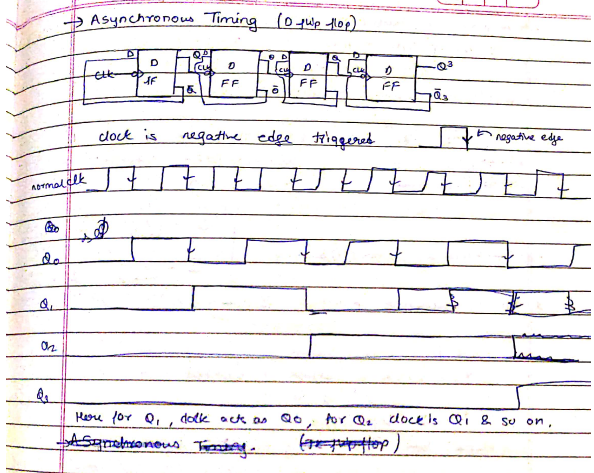 → Asynchronous Timing (D flip flop)
D Q D Q D Q D Q3
Clk D FF Q̅ Clk D FF Q̅ Clk D FF Clk D FF Q̅3
clock is negative edge triggered negative edge
normal clk
Q0
Q1
Q2
Q3
Here for Q1, clolk acts as Q0, for Q2 clock is Q1 & so on.
→ Asynchronous Timing. (JK flip flop)